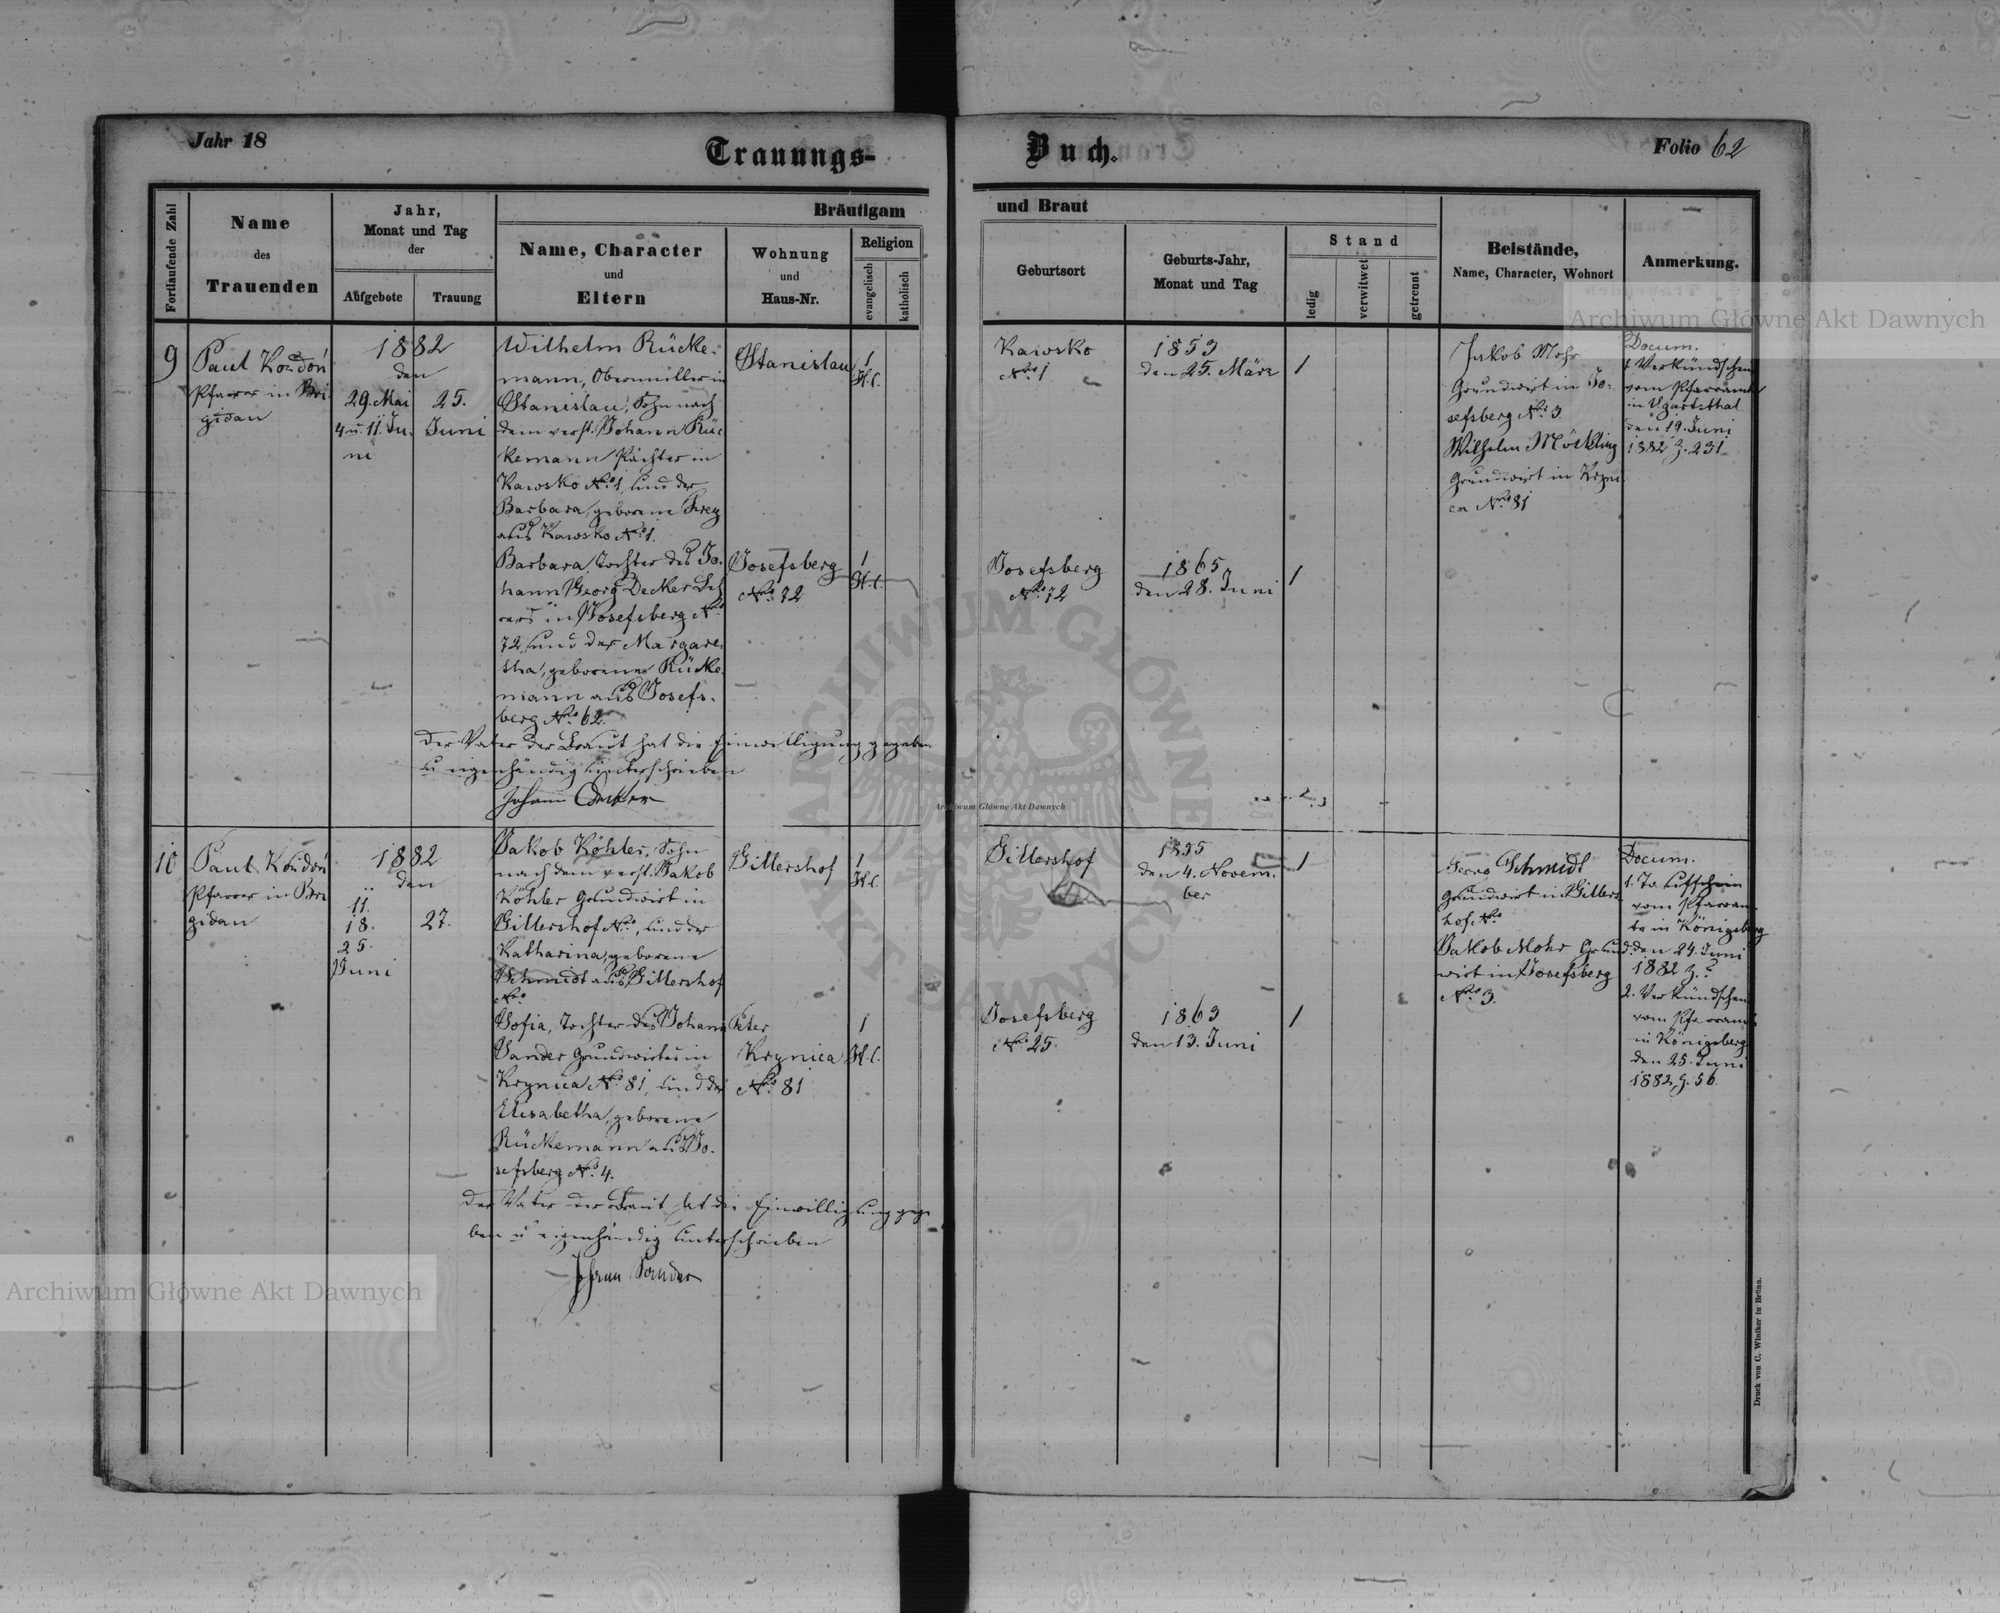 Jahr 18
Trauungs-
Buch.
Folio 62
Fortlaufende Zahl
Name
des
Trauenden
Jahr,
Monat und Tag
der
Aufgebote
Trauung
Bräutigam
und Braut
Name, Character
und
Eltern
Wohnung
und
Haus-Nr.
Religion
evangelisch
katholisch
Geburtsort
Geburts-Jahr,
Monat und Tag
Stand
ledig
verwitwet
getrennt
Beistände,
Name, Character, Wohnort
Anmerkung.
9
Paul
Pfarrer in Bri-
gidau
1882
den
29. Mai
4 u. 11. Ju-
ni
25.
Juni
Wilhelm Rücke-
mann, Obermüller in
Stanislau, Sohn nach
dem verst. Johann Rüc
kemann Pächter in
Kawsko No 1, und der
Barbara, geborene Frey
aus Kawsko No 1.
Stanislau
1
H.C.
Kawsko
No 1
1853
den 25. März
1
Jakob Mohr
Grundwirt in Jo-
sefsberg No 3.
Wilhelm Möckling
Grundwirt in Kryni
ca No 81
Docum.
1. Verkündschein
vom Pfarramte
in Ugartsthal
den 19. Juni
1882 Z. 231
Barbara, Tochter des Jo-
hann Georg Decker Leh
rers in Josefsberg No
72, und der Margare-
tha, geborene Rücke-
mann aus Josefs-
berg No 62.
Josefsberg
No 72
1
H.C.
Josefsberg
No 72
1865
den 28. Juni
1
Der Vater der Braut hat die Einwilligung gegeben
u eigenhändig unterschrieben
Johann Decker
10
Paul
Pfarrer in Bri
gidau
1882
den
11.
18.
25.
Juni
27.
Jakob Köhler, Sohn
nach dem verst. Jakob
Köhler Grundwirt in
Gillershof No , und der
Katharina, geborene
Schmidt aus Gillershof
No
Gillershof
1
H.C.
Gillershof
1855
den 4. Novem-
ber
1
Schmidt
Grundwirt in Gillers
hof No
Jakob Mohr Grund-
wirt in Josefsberg
No 3.
Docum.
1. Taufschein
vom Pfarram-
te in Königsberg
den 24. Juni
1882 Z. ?
2. Verkündschein
vom Pfarramte
in Königsberg
den 25. Juni
1882, Z. 56.
Sofia, Tochter des Johann Peter
Sander Grundwirtes in
Krynica No 81, und der
Elisabetha, geborene
Rückemann aus Jo-
sefsberg No 4.
Krynica
No 81
1
H.C.
Josefsberg
No 25.
1863
den 13. Juni
1
Der Vater der Braut hat die Einwilligung gege
ben u eigenhändig unterschrieben
Johann Sander
Druck von C. Winiker in Brünn.
Archiwum Główne Akt Dawnych
Archiwum Główne Akt Dawnych
Archiwum Główne Akt Dawnych
ARCHIWUM GŁÓWNE AKT DAWNYCH